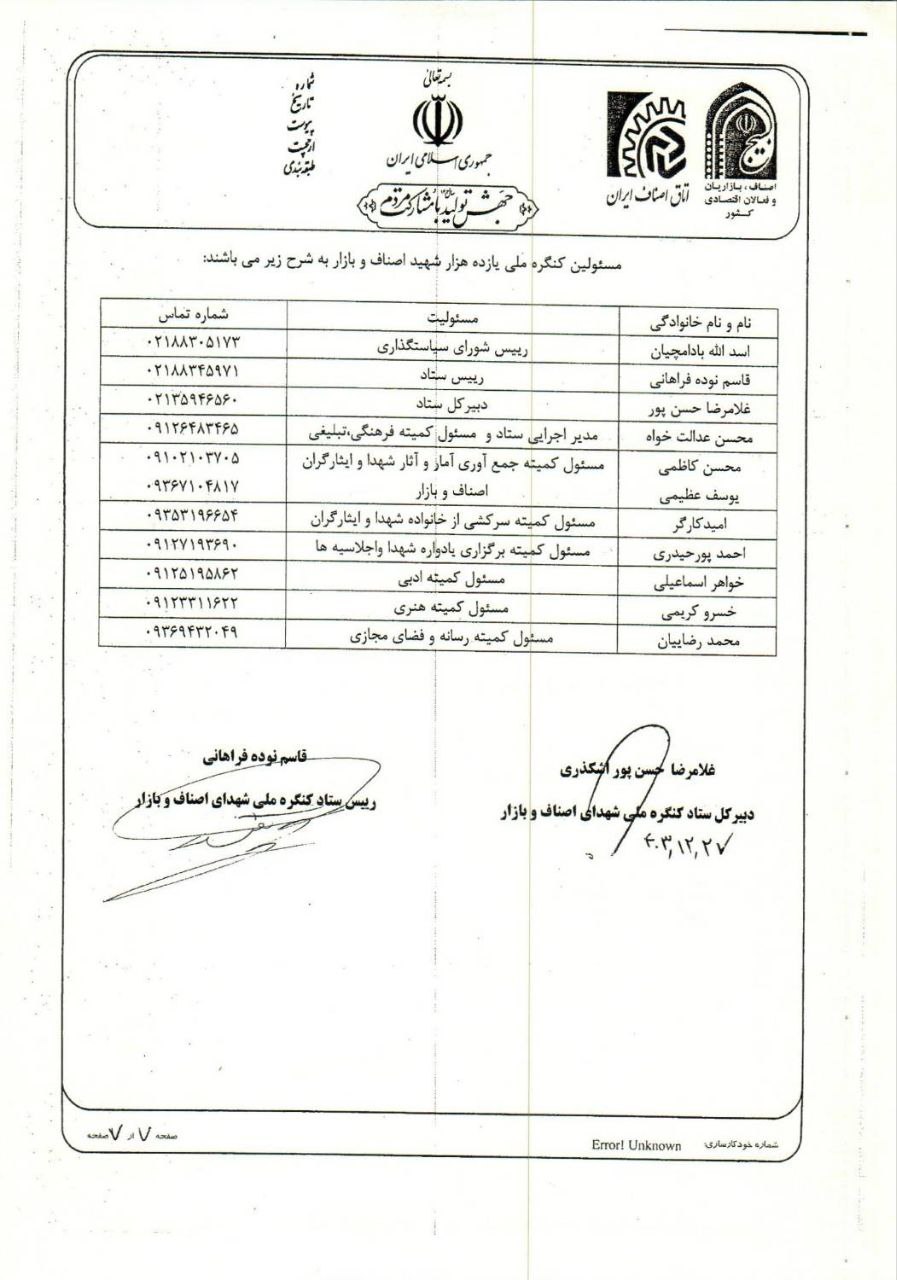 بسمه تعالی
جمهوری اسلامی ایران
جهش تولید با مشارکت مردم
شماره
تاریخ
پیوست
ارجحیت
طبقه بندی
اتاق اصناف ایران
بسیج
اصناف، بازاریان
و فعالان اقتصادی
کشور
مسئولین کنگره ملی یازده هزار شهید اصناف و بازار به شرح زیر می باشند:
نام و نام خانوادگی مسئولیت شماره تماس
اسد الله بادامچیان رییس شورای سیاستگذاری ۰۲۱۸۸۳۰۵۱۷۳
قاسم نوده فراهانی رییس ستاد ۰۲۱۸۸۳۴۵۹۷۱
غلامرضا حسن پور دبیرکل ستاد ۰۲۱۳۵۹۴۶۵۶۰
محسن عدالت خواه مدیر اجرایی ستاد و مسئول کمیته فرهنگی،تبلیغی ۰۹۱۲۶۴۸۳۴۶۵
محسن کاظمی مسئول کمیته جمع آوری آمار و آثار شهدا و ایثارگران ۰۹۱۰۲۱۰۳۷۰۵
یوسف عظیمی اصناف و بازار ۰۹۳۶۷۱۰۴۸۱۷
امیدکارگر مسئول کمیته سرکشی از خانواده شهدا و ایثارگران ۰۹۳۵۳۱۹۶۶۵۴
احمد پورحیدری مسئول کمیته برگزاری یادواره شهدا واجلاسیه ها ۰۹۱۲۷۱۹۳۶۹۰
خواهر اسماعیلی مسئول کمیته ادبی ۰۹۱۲۵۱۹۵۸۶۲
خسرو کریمی مسئول کمیته هنری ۰۹۱۲۳۳۱۱۶۲۲
محمد رضاییان مسئول کمیته رسانه و فضای مجازی ۰۹۳۶۹۴۳۲۰۴۹
غلامرضا حسن پور اشکذری
دبیرکل ستاد کنگره ملی شهدای اصناف و بازار
۴۰۳,۱۲,۲۷
قاسم نوده فراهانی
رییس ستاد کنگره ملی شهدای اصناف و بازار
شماره خودکارسازی: Error! Unknown
صفحه ۷ از ۷ صفحه